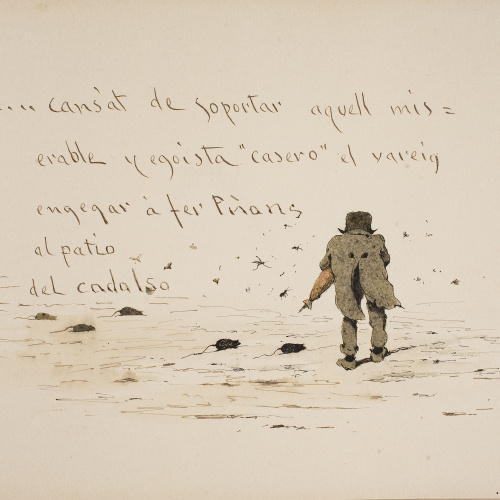 .... cansat de soportar aquell mis=
erable y egoista "casero" el vareig
engegar à fer Piñons
al patio
del cadalso